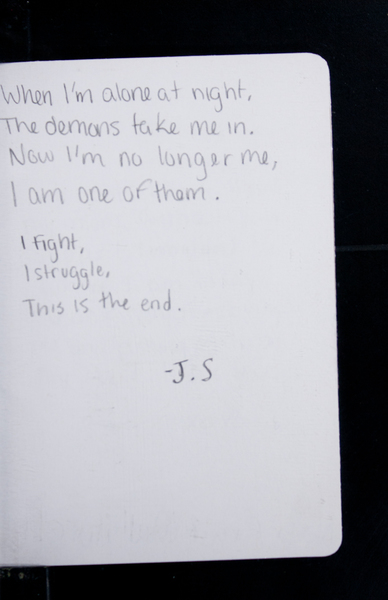 When I'm alone at night,
The demons take me in.
Now I'm no longer me,
I am one of them.
I Fight,
I struggle,
This is the end.
-J.S